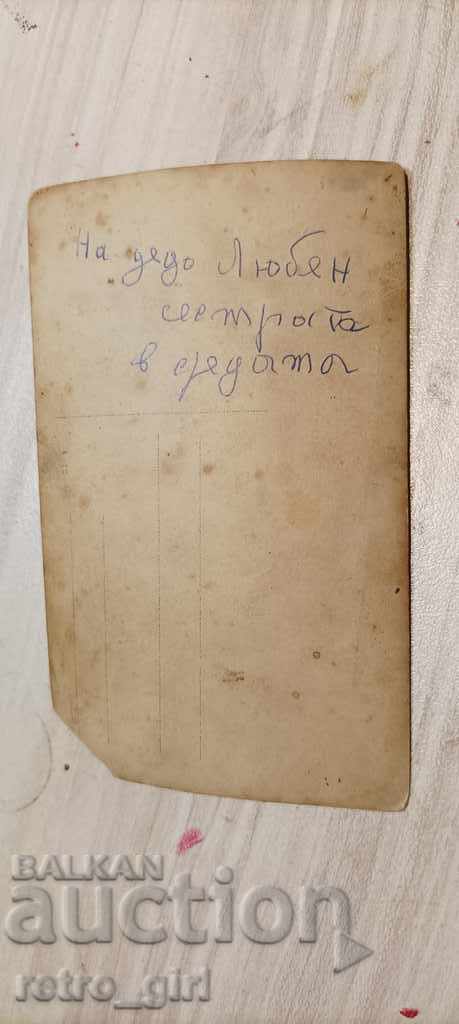 На дядо Любен
сестрата
в средата
BALKAN
auction
retro_girl